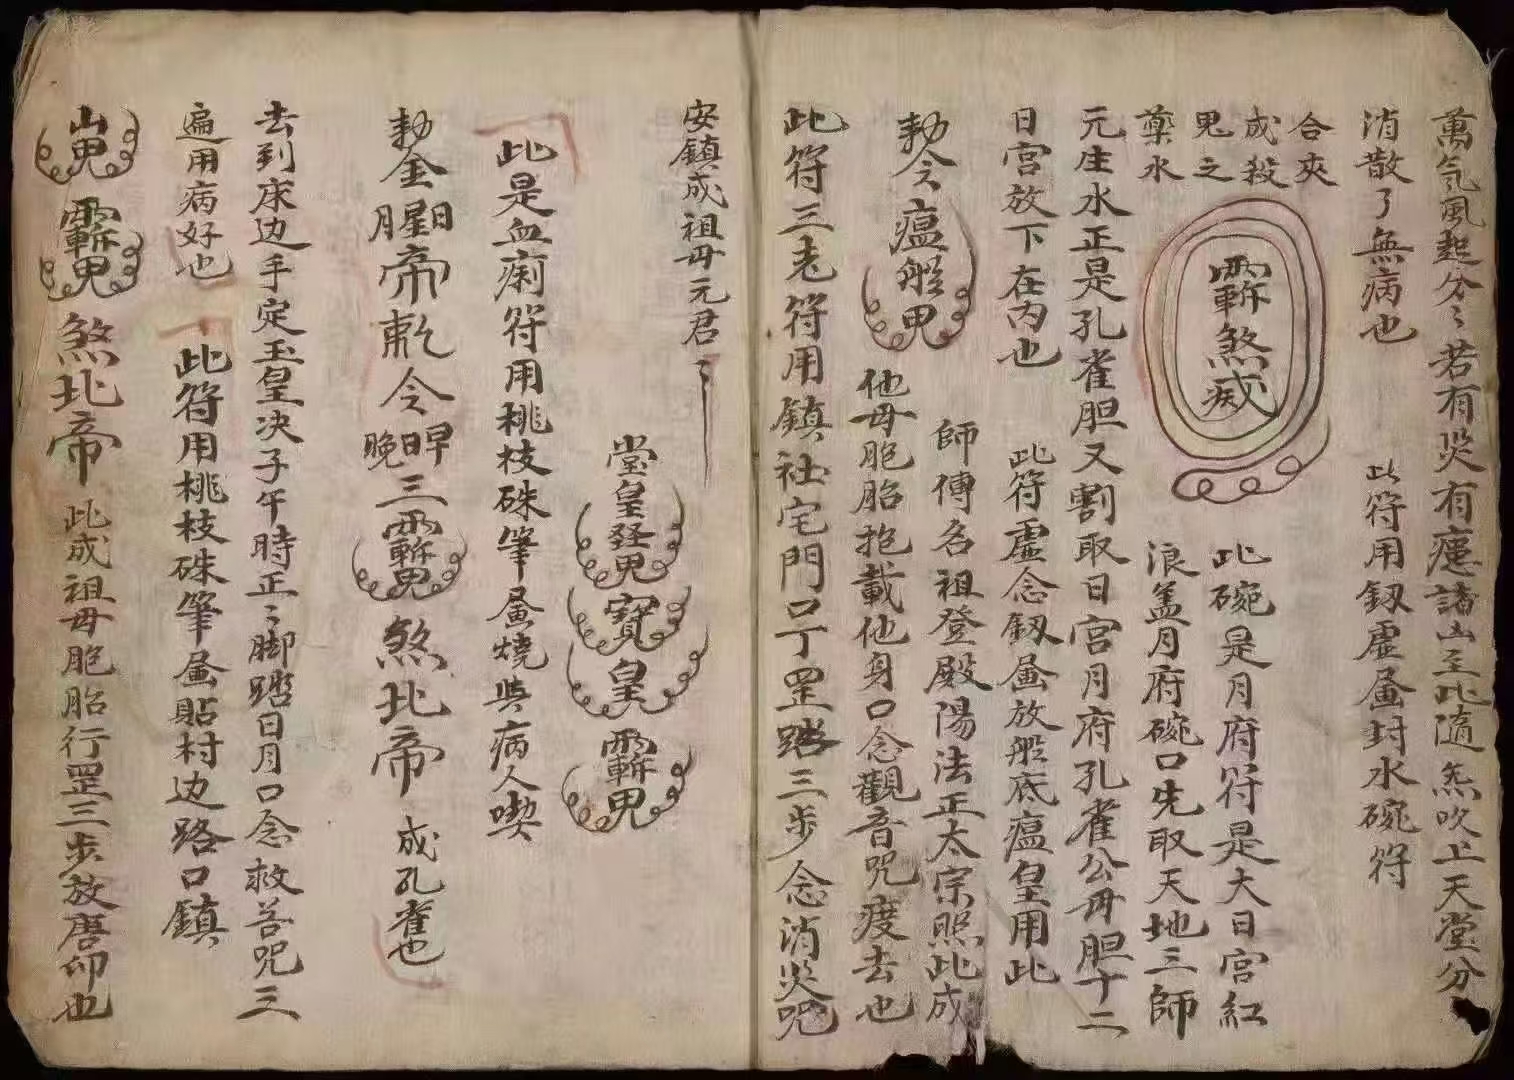 萬气風起分〻若有災有瘧諸山至此隨炁吹上天堂分
消散了無病也
此符用釼虛畫封水碗符
合夾
成殺
鬼之
藥水
煞
此碗是月府符是大日宮紅
浪盖月府碗口先取天地三師
元庄水正是孔雀胆又割取日宮月府孔雀公毋胆十二
日宮放下在内也
此符虛念釼畫放船底瘟皇用此
勅令瘟船鬼
師傅名祖登殿陽法正太宗照此成
他毋胞胎抱載他身口念觀音咒度去也
此符三老符用鎮社宅門口丁罡踏三步念消災咒
安鎮成祖毋元君〻
堂皇發鬼
寳皇
此是血痢符用桃枝硃筆畫燒與病人喫
勅金月星日帝
令晚日早三
煞北帝
成孔雀也
去到床边手定玉皇决子午時正〻脚踏日月口念救苦咒三
遍用病好也
此符用桃枝硃筆畫貼村边路口鎮
煞北帝
此成祖毋胞胎行罡三步放唐仰也